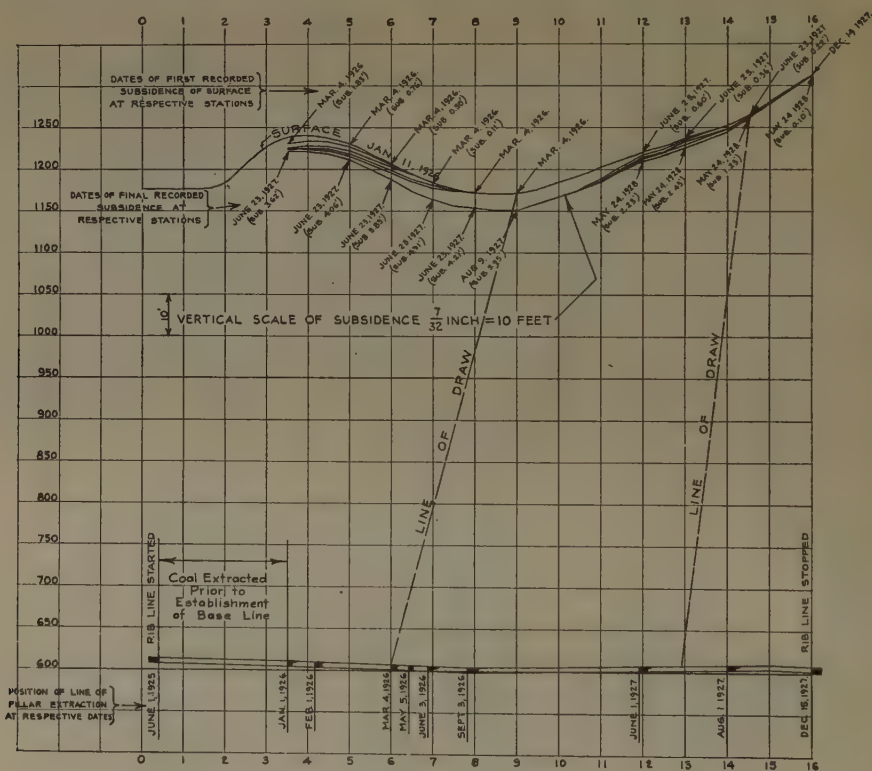 0 1 2 3 4 5 6 7 8 9 10 11 12 13 14 15 16
DATES OF FIRST RECORDED
SUBSIDENCE OF SURFACE
AT RESPECTIVE STATIONS
MAR. 4, 1926
(SUB. 1.85')
MAR. 4, 1926.
(SUB. 0.70')
MAR. 4, 1926.
(SUB. 0.30')
MAR. 4, 1926
(SUB. 0.11')
MAR. 4, 1926.
MAR. 4, 1926.
JUNE 23, 1927.
(SUB. 0.60')
JUNE 23, 1927
(SUB. 0.34')
JUNE 23, 1927
DEC. 14 1927.
SURFACE
JAN. 11, 1926
1250
1200
1150
1100
1050
1000
950
900
850
800
750
700
650
600
DATES OF FINAL RECORDED
SUBSIDENCE AT
RESPECTIVE STATIONS
JUNE 23, 1927
(SUB. 3.62')
JUNE 23, 1927
(SUB. 4.06')
JUNE 23, 1927.
JUNE 23 1927.
JUNE 23, 1927.
AUG 9, 1927.
MAY 24, 1928
(SUB. 2.23')
MAY 24, 1928
(SUB. 2.45')
MAY 24, 1928
MAY 24 1928
(SUB. 0.10')
10'
VERTICAL SCALE OF SUBSIDENCE 7/32 INCH = 10 FEET
LINE OF DRAW
LINE OF DRAW
RIB LINE STARTED
Coal Extracted
Prior to
Establishment
of Base Line
RIB LINE STOPPED
POSITION OF LINE OF
PILLAR EXTRACTION
AT RESPECTIVE DATES
JUNE 1, 1925
JAN. 1, 1926
FEB. 1, 1926
MAR. 4, 1926
MAY 5, 1926
JUNE 3, 1926
SEPT. 3, 1926
JUNE 1, 1927
AUG. 1 1927.
DEC. 15, 1927.
0 1 2 3 4 5 6 7 8 9 10 11 12 13 14 15 16